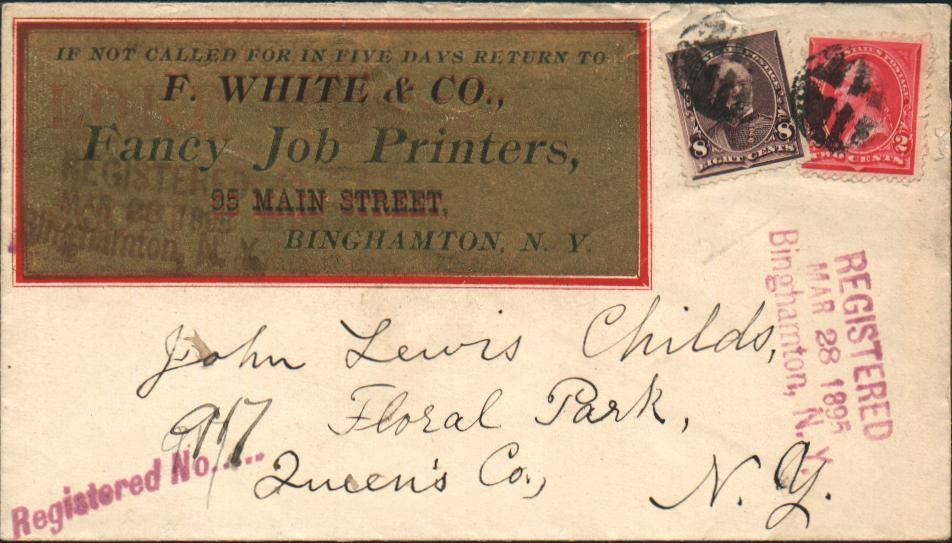 IF NOT CALLED FOR IN FIVE DAYS RETURN TO
F. WHITE & CO.,
Fancy Job Printers,
95 MAIN STREET,
BINGHAMTON, N. Y.
REGISTERED
MAR 28 1895
Binghamton, N. Y.
8 8
EIGHT CENTS
STATES POSTAGE
2
TWO CENTS
REGISTERED
MAR 28 1895
Binghamton, N. Y.
John Lewis Childs,
Floral Park,
Queen's Co.,
N. Y.
917
Registered No......